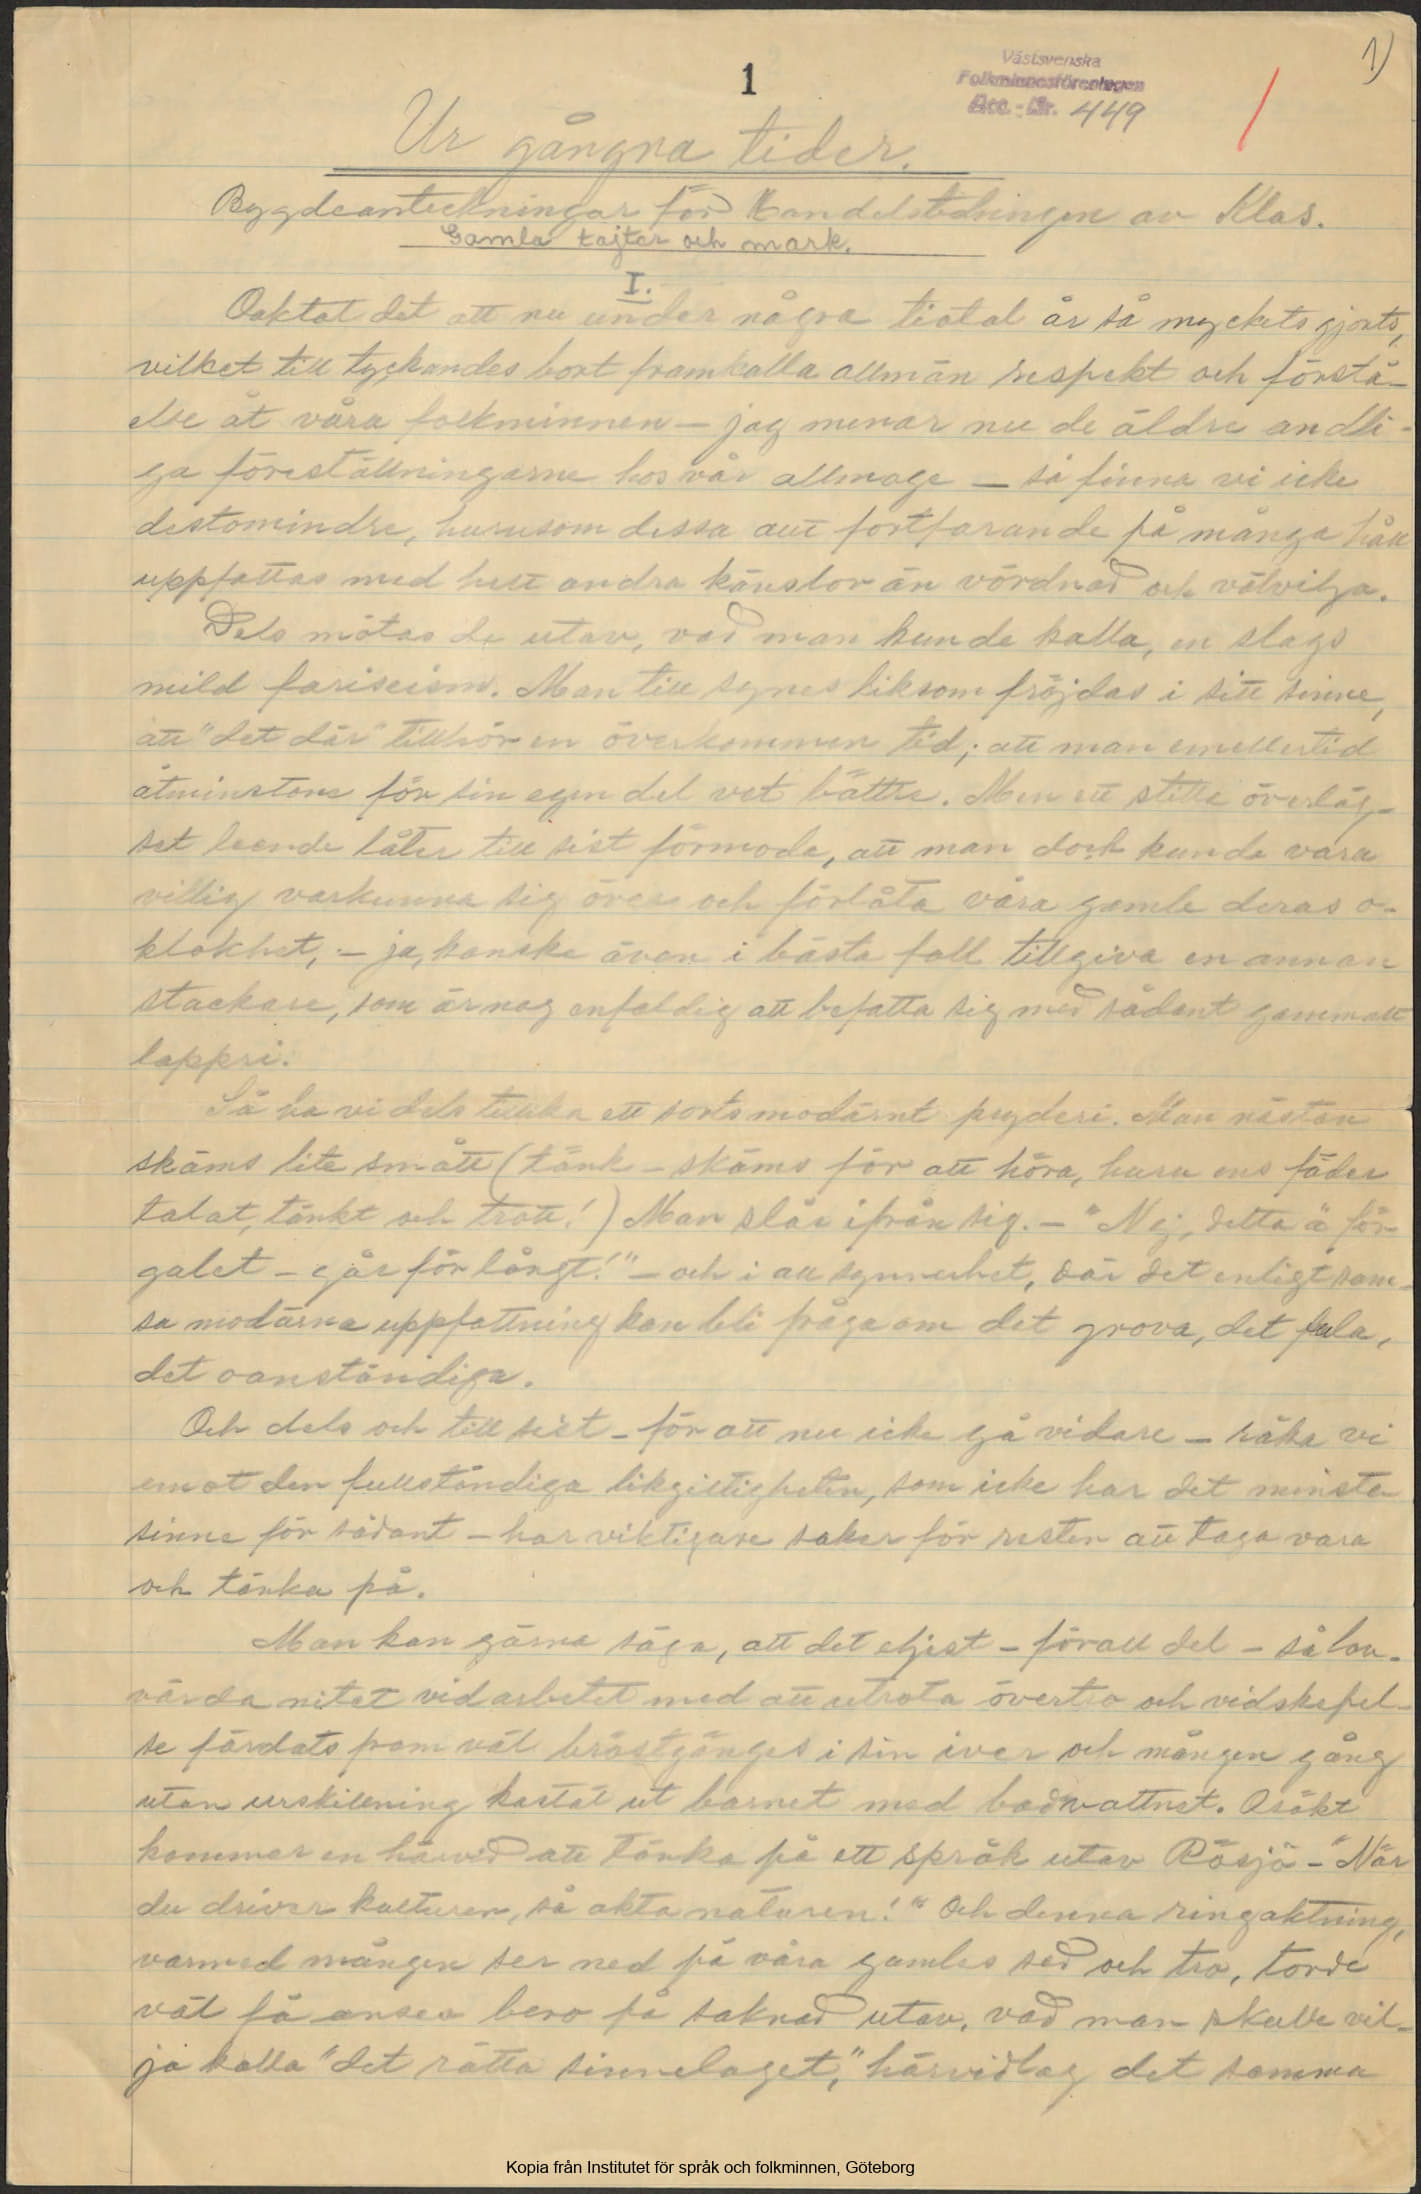 1)
1
Västsvenska
Folkminnesföreningen
Acc.-Nr. 449
Ur gångna tider.
Bygdeanteckningar för Handelstidningen av Klas.
Gamla tajter och mark.
I.
Oaktat det att nu under några tiotal år så myckets gjorts,
vilket till tyckandes bort framkalla allmän respekt och förstå-
else åt våra folkminnen – jag menar nu de äldre andli-
ga föreställningarne hos vår allmoge – så finna vi icke
destomindre, hurusom dessa allt fortfarande på många håll
uppfattas med helt andra känslor än vördnad och välvilja.
Dels mötas de utav, vad man kunde kalla, en slags
mild fariseism. Man till synes liksom fröjdas i sitt sinne,
att "det där" tillhör en överkommen tid; att man emellertid
åtminstone för sin egen del vet bättre. Men ett stilla överläg-
set leende låter till sist förmoda, att man dock kunde vara
villig varkunna sig över och förlåta våra gamle deras o-
klokhet, – ja, kanske även i bästa fall tillgiva en annan
stackare, som är nog enfaldig att befatta sig med sådant gammalt
lappri.
Så ha vi dels tillika ett sorts modärnt pryderi. Man nästan
skäms lite smått (tänk – skäms för att höra, huru ens fäder
talat, tänkt och trott!) Man slår ifrån sig. – "Nej, detta ä för
galet – går för långt!" – och i all synnerhet, där det enligt sam-
ma modärna uppfattning kan bli fråga om det grova, det fula,
det oanständiga.
Och dels och till sist – för att nu icke gå vidare – råka vi
emot den fullständiga likgiltigheten, som icke har det minsta
sinne för sådant – har viktigare saker för resten att taga vara
och tänka på.
Man kan gärna säga, att det eljest – för all del – så lov-
värda nitet vid arbetet med att utrota övertro och vidskepel-
se färdats fram väl bröstgänges i sin iver och mången gång
utan urskillning kastat ut barnet med badvattnet. Osökt
kommer en härvid att tänka på ett språk utav Rösjö – "När
du driver kulturen, så akta naturen!" Och denna ringaktning,
varmed mången ser ned på våra gamles sed och tro, torde
väl få anses bero på saknad utav, vad man skulle vil-
ja kalla "det rätta sinnelaget," härvidlag det samma
Kopia från Institutet för språk och folkminnen, Göteborg